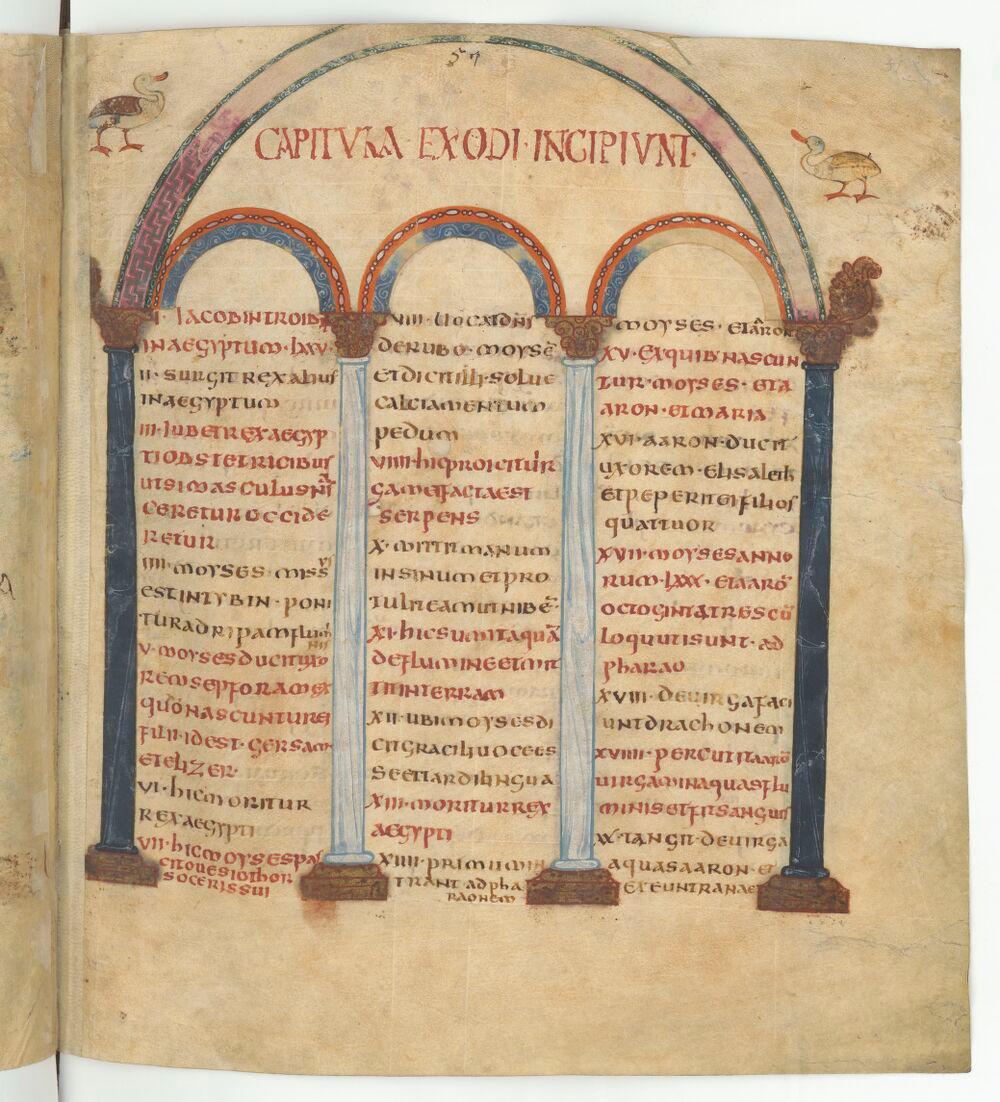 CAPITULA EXODI INCIPIUNT
I · IACOB INTROIIT
IN AEGYPTUM · LXXV ·
II · SURGIT REX ALIUS
IN AEGYPTUM
III · IUBET REX AEGYP
TI OBSTETRICIBUS
UT SI MASCULUS NAS
CERETUR OCCIDE
RETUR
IIII · MOYSES MISSUS
EST IN TYBIN · PONI
TUR AD RIPAM FLUMI
NIS
V · MOYSES DUCIT UXO
REM SEPFORAM EX
QUO NASCUNTUR EI
FILII · ID EST · GERSAM
ET ELIZER ·
VI · HIC MORITUR
REX AEGYPTI
VII · HIC MOYSES PAS
CIT OVES IOTHOR
SOCERIS SUI
VIII · UOCAT DNS
DE RUBO · MOYSE
ET DICIT ILLI · SOLUE
CALCIAMENTUM
PEDUM
VIIII · HIC PROICIT UIR
GAM ET FACTA EST
SERPENS
X · MITTIT MANUM
IN SINUM ET PRO
TULIT EAM UT NIBE
XI · HIC SUMIT AQUA
DE FLUMINE ET MIT
TIT IN TERRAM
XII · UBI MOYSES DI
CIT GRACILI UOCE ES
SE ET TARDI LINGUA
XIII · MORITUR REX
AEGYPTI
XIIII · PRIMUM IN
TRANT AD PHA
RAONEM
MOYSES · ET AARON
XV · EX QUIB NASCUN
TUR · MOYSES · ET A
ARON · ET MARIA
XVI · AARON · DUCIT
UXOREM · ELISABETH
ET PEPERIT EI FILIOS
QUATTUOR
XVII · MOYSES ANNO
RUM · LXXX · ET AARO
OCTOGINTA TRES CU
LOQUUTI SUNT · AD
PHARAO
XVIII · DE UIRGA FACI
UNT DRACHONEM
XVIIII · PERCUTIT AARO
UIRGAM IN AQUAS FLU
MINIS ET FIT SANGUIS
XX · TANGIT · DE UIRGA
AQUAS AARON · ET
EXEUNT RANAE